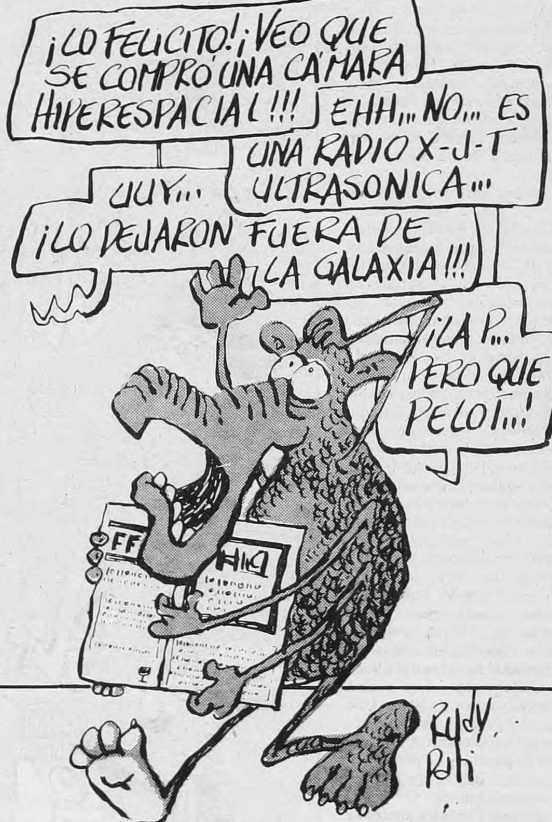 ¡LO FELICITO!¡VEO QUE
SE COMPRÓ UNA CÁMARA
HIPERESPACIAL!!!
EHH... NO... ES
UNA RADIO X-J-T
ULTRASONICA...
UUY...
¡LO DEJARON FUERA DE
LA GALAXIA!!!
¡LA P...
PERO QUE
PELOT...!
FF
RUDY.
Pati